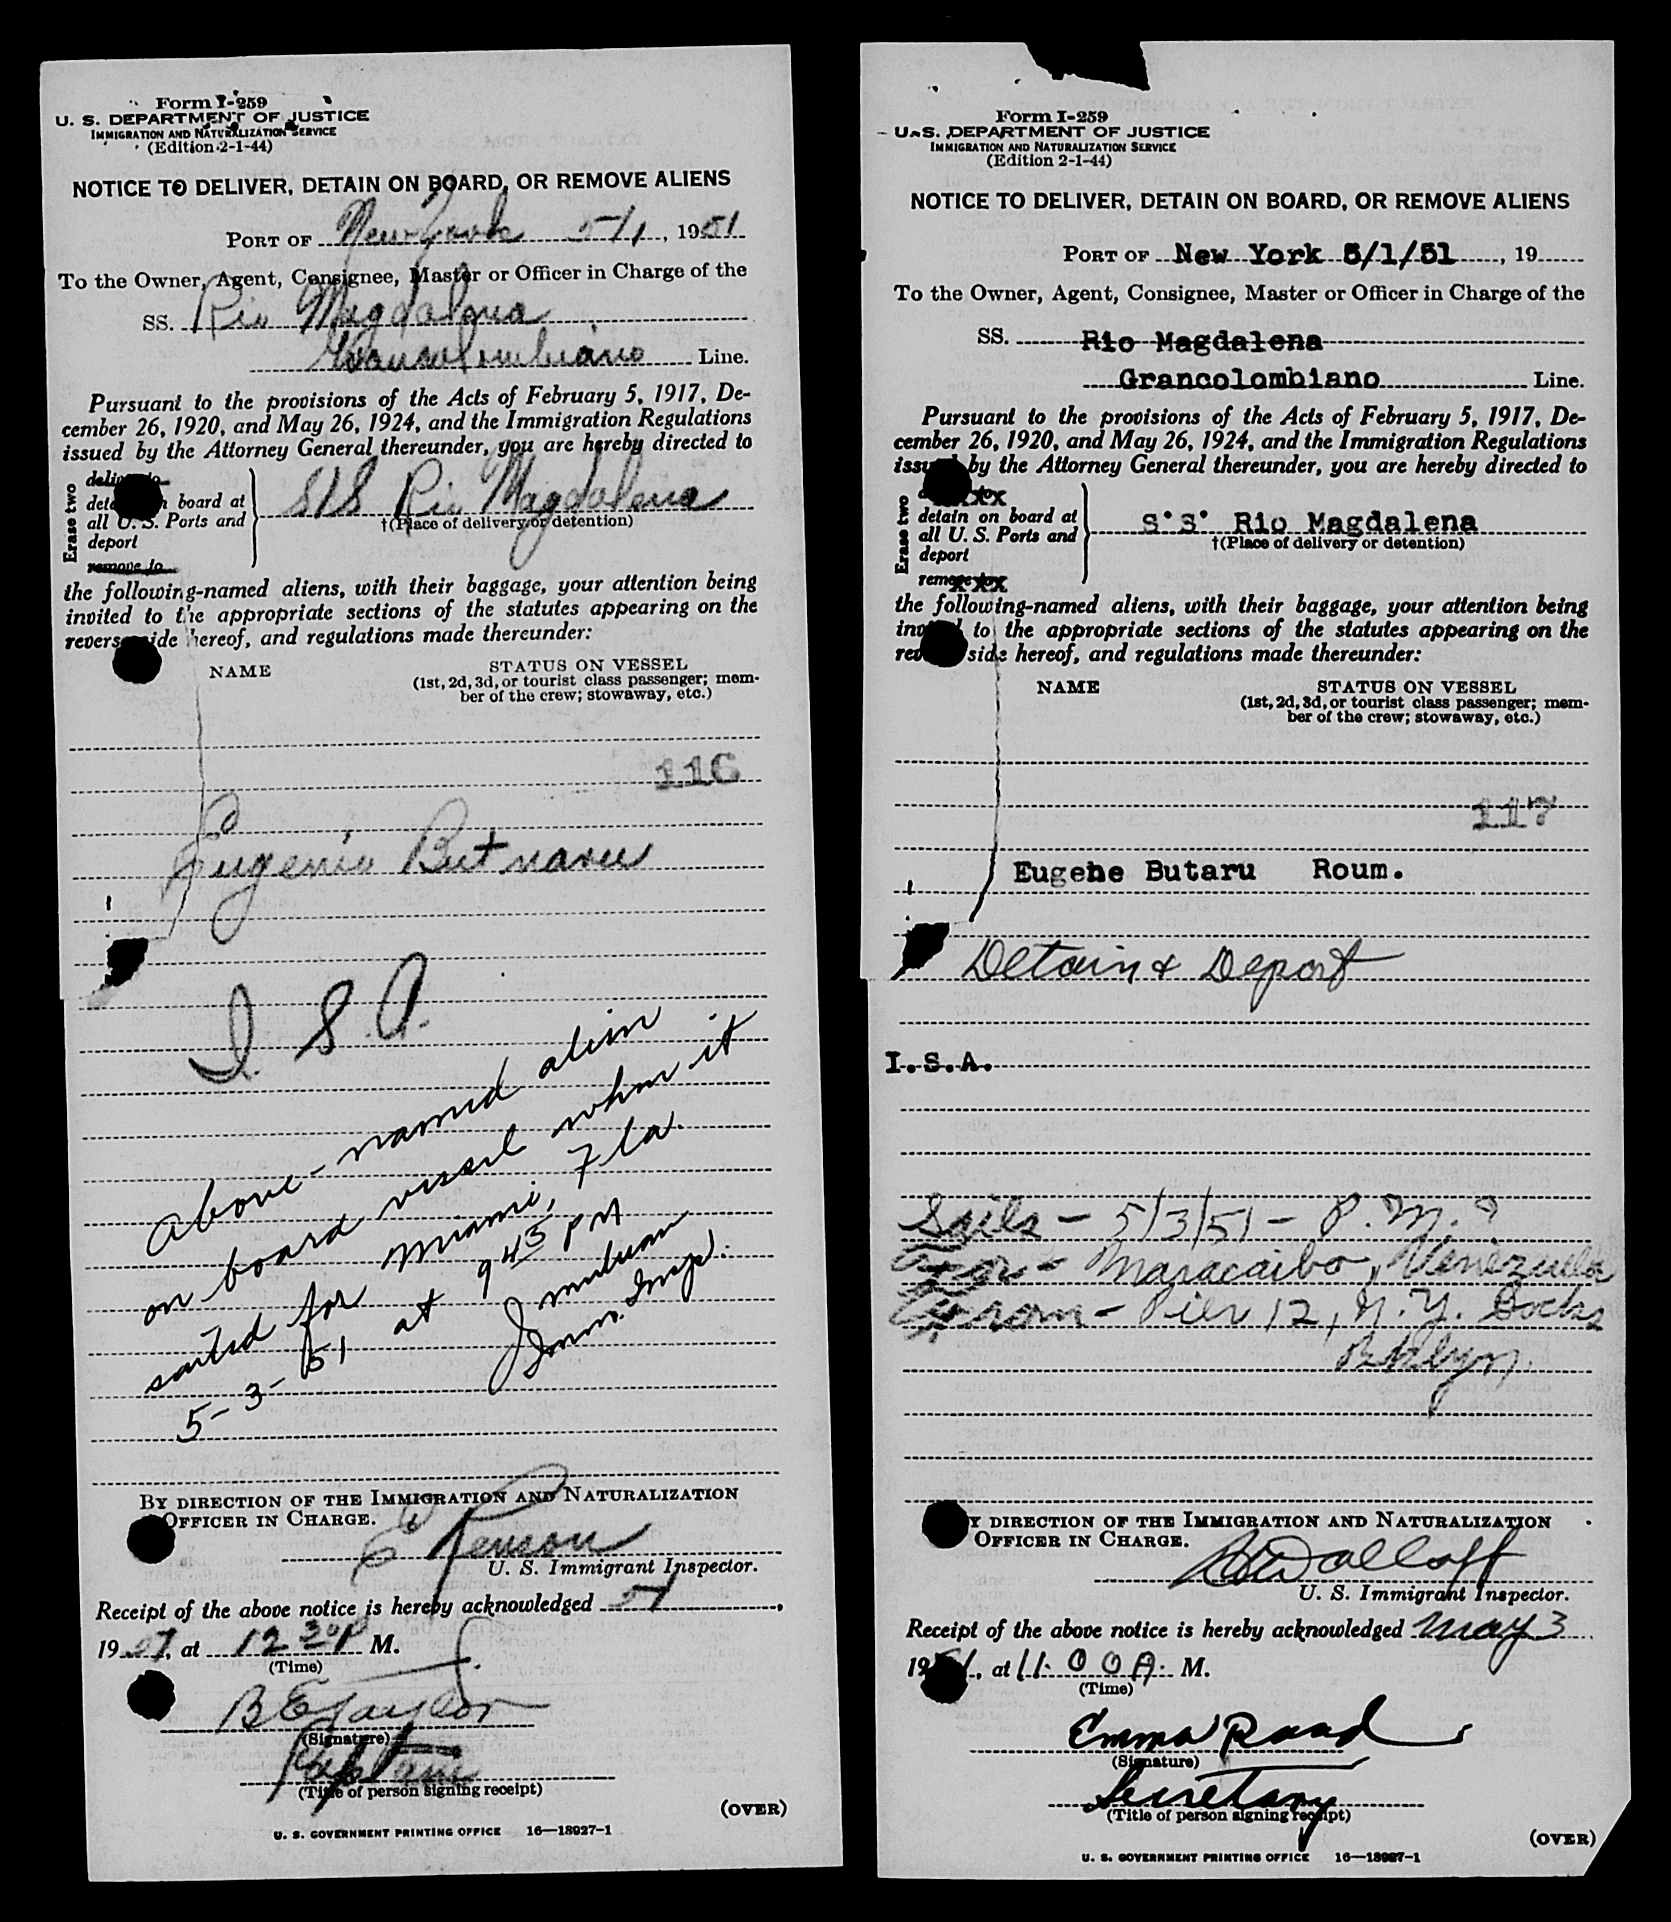 Form I-259
U. S. DEPARTMENT OF JUSTICE
IMMIGRATION AND NATURALIZATION SERVICE
(Edition 2-1-44)
NOTICE TO DELIVER, DETAIN ON BOARD, OR REMOVE ALIENS
PORT OF New York 5/1, 1951
To the Owner, Agent, Consignee, Master or Officer in Charge of the
SS. Rio Magdalena
Grancolombiano Line.
Pursuant to the provisions of the Acts of February 5, 1917, De-
cember 26, 1920, and May 26, 1924, and the Immigration Regulations
issued by the Attorney General thereunder, you are hereby directed to
Erase two
board at
all U. S. Ports and
deport
remove to
S/S Rio Magdalena
†(Place of delivery or detention)
the following-named aliens, with their baggage, your attention being
invited to the appropriate sections of the statutes appearing on the
reverse side hereof, and regulations made thereunder:
NAME STATUS ON VESSEL
(1st, 2d, 3d, or tourist class passenger; mem-
ber of the crew; stowaway, etc.)
116
Eugenio Butnaru
I. S. A.
Above-named alien
on board vessel when it
sailed for Miami, Fla.
5-3-51 at 9 45 PM
Imm. Insp.
BY DIRECTION OF THE IMMIGRATION AND NATURALIZATION
OFFICER IN CHARGE.
U. S. Immigrant Inspector.
Receipt of the above notice is hereby acknowledged 5/1,
19 51, at 12 30 P M.
(Time)
B E Taylor
(Signature)
Captain
(Title of person signing receipt)
(OVER)
U. S. GOVERNMENT PRINTING OFFICE 16—18927-1
Form I-259
U. S. DEPARTMENT OF JUSTICE
IMMIGRATION AND NATURALIZATION SERVICE
(Edition 2-1-44)
NOTICE TO DELIVER, DETAIN ON BOARD, OR REMOVE ALIENS
PORT OF New York 5/1/51, 19
To the Owner, Agent, Consignee, Master or Officer in Charge of the
SS. Rio Magdalena
Grancolombiano Line.
Pursuant to the provisions of the Acts of February 5, 1917, De-
cember 26, 1920, and May 26, 1924, and the Immigration Regulations
issued by the Attorney General thereunder, you are hereby directed to
Erase two
xxx
detain on board at
all U. S. Ports and
deport
remove to xxx
S.S. Rio Magdalena
†(Place of delivery or detention)
the following-named aliens, with their baggage, your attention being
invited to the appropriate sections of the statutes appearing on the
reverse side hereof, and regulations made thereunder:
NAME STATUS ON VESSEL
(1st, 2d, 3d, or tourist class passenger; mem-
ber of the crew; stowaway, etc.)
117
Eugene Butaru Roum.
Detain & Deport
I.S.A.
Sails - 5/3/51 - P.M.?
For - Maracaibo, Venezuela
From - Pier 12, N.Y. Docks
Bklyn.
BY DIRECTION OF THE IMMIGRATION AND NATURALIZATION
OFFICER IN CHARGE.
U. S. Immigrant Inspector.
Receipt of the above notice is hereby acknowledged May 3
1951, at 11:00 A. M.
(Time)
Emma Raad
(Signature)
Secretary
(Title of person signing receipt)
(OVER)
U. S. GOVERNMENT PRINTING OFFICE 16—18927-1